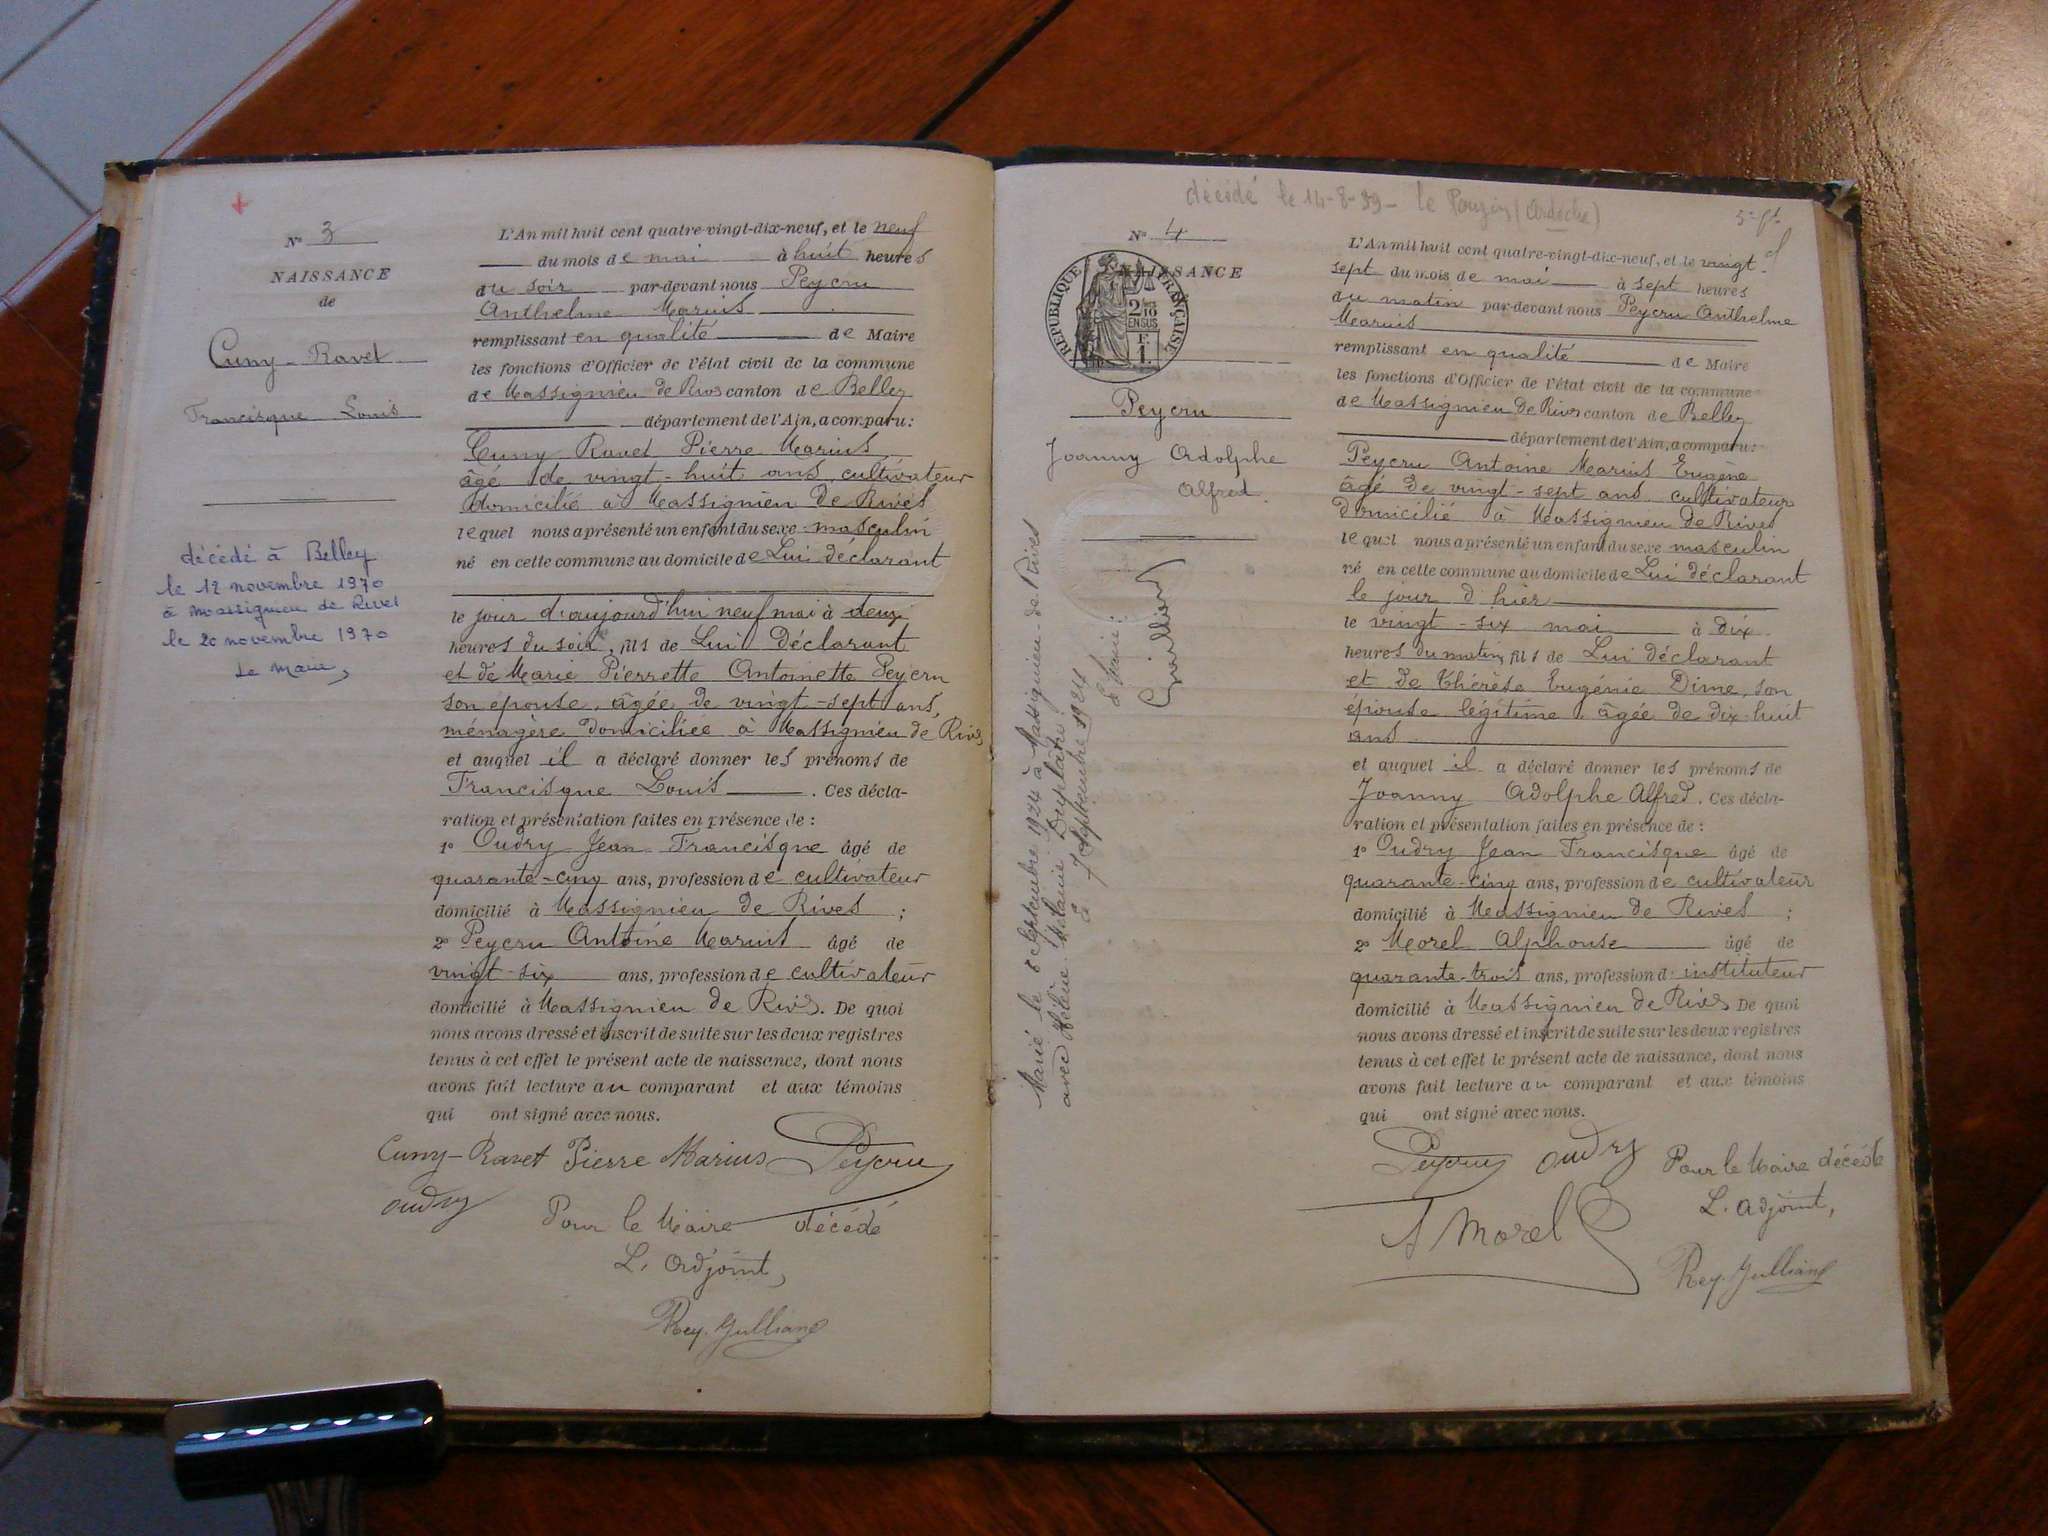 N° 3
NAISSANCE
de
Cuny-Ravet
Francisque Louis
décédé à Belley
le 12 novembre 1970
à Massignieu de Rivet
le 20 novembre 1970
Le Maire,
L'An mil huit cent quatre-vingt-dix-neuf, et le neuf
du mois de mai à huit heures
du soir par-devant nous Peycru
Anthelme Marius
remplissant en qualité de Maire
les fonctions d'Officier de l'état civil de la commune
de Massignieu de Rives canton de Belley
département de l'Ain, a comparu:
Cuny Ravet Pierre Marius
âgé de vingt-huit ans, cultivateur
domicilié à Massignieu de Rives
lequel nous a présenté un enfant du sexe masculin
né en cette commune au domicile de Lui déclarant
le jour d'aujourd'hui neuf mai à deux
heures du soir, fils de Lui Déclarant
et de Marie Pierrette Antoinette Peycru
son épouse, âgée de vingt-sept ans,
ménagère domiciliée à Massignieu de Rives
et auquel il a déclaré donner les prénoms de
Francisque Louis. Ces décla-
ration et présentation faites en présence de :
1° Oudry Jean Francisque âgé de
quarante-cinq ans, profession de cultivateur
domicilié à Massignieu de Rives ;
2° Peycru Antoine Marius âgé de
vingt-six ans, profession de cultivateur
domicilié à Massignieu de Rives. De quoi
nous avons dressé et inscrit de suite sur les deux registres
tenus à cet effet le présent acte de naissance, dont nous
avons fait lecture au comparant et aux témoins
qui ont signé avec nous.
Cuny-Ravet Pierre Marius Peycru
oudry
Pour le Maire décédé
L. Adjoint,
Rey. Gulliand
décédé le 14-8-39 - le Pouzin (Ardèche)
N° 4
NAISSANCE
RÉPUBLIQUE FRANÇAISE
2/10
EN SUS
F.
1.
Peycru
Joanny Adolphe
Alfred
Marié le 8 Septembre 1924 à Massignieu-de-Rives
avec Hélène Mélanie
7 Septembre 1924
Le Maire:
L'An mil huit cent quatre-vingt-dix-neuf, et le vingt
sept du mois de mai à sept heures
du matin par-devant nous Peycru Anthelme
Marius
remplissant en qualité de Maire
les fonctions d'Officier de l'état civil de la commune
de Massignieu de Rives canton de Belley
département de l'Ain, a comparu:
Peycru Antoine Marius Eugène
âgé de vingt-sept ans cultivateur
domicilié à Massignieu de Rives
lequel nous a présenté un enfant du sexe masculin
né en cette commune au domicile de Lui déclarant
le jour d'hier
le vingt-six mai à dix
heures du matin, fils de Lui déclarant
et de Thérèse Eugénie Dime, son
épouse légitime, âgée de dix-huit
ans
et auquel il a déclaré donner les prénoms de
Joanny Adolphe Alfred. Ces décla-
ration et présentation faites en présence de :
1° Oudry Jean Francisque âgé de
quarante-cinq ans, profession de cultivateur
domicilié à Massignieu de Rives ;
2° Morel Alphonse âgé de
quarante-trois ans, profession d'instituteur
domicilié à Massignieu de Rives De quoi
nous avons dressé et inscrit de suite sur les deux registres
tenus à cet effet le présent acte de naissance, dont nous
avons fait lecture au comparant et aux témoins
qui ont signé avec nous.
Peycru oudry Pour le Maire décédé
L. adjoint,
A Morel
Rey. Gulliand